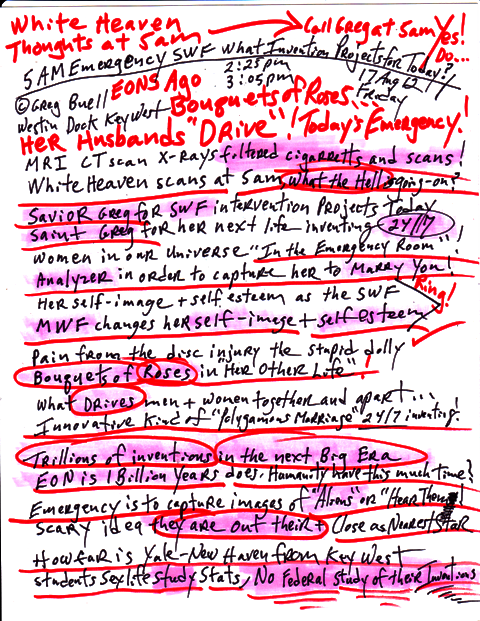 White Heaven
Thoughts at 5am → Call Greg at 5am Yes!
Do...
5AM Emergency SWF What Invention Projects for Today?
EONS Ago 2:25 pm
3:05 pm
17 Aug 12
Friday
© Greg Buell
Westin Dock Key West Bouquets of Roses...
HER Husbands "DRive"! Today's Emergency!
MRI CT scan X-Rays filtered cigaretts and scans!
White Heaven scans at 5am, What the Hell is going-on?
Savior Greg for SWF intervention Projects Today
Saint Greg for her next life inventing 24/7
women in our universe "In the Emergency Room"!
Analyzer in order to capture her to Marry You!
Her self-image + self esteem as the SWF
Ring!
MWF changes her self-image + self esteem
Pain from the disc injury the stupid dolly
Bouquets of Roses in Her Other Life"!
what DRives men + women together and apart...
Innovative Kind of "Polygamous Marriage" 24/7 inventing!
Trillions of inventions in the next Big Era
EON is 1 Billion Years does Humanity have this much time?
Emergency is to capture images of "Aliens" or "Hear Them"!
Scary idea they are out their + Close as Nearest Star
How far is Yale-New Haven from Key West
students Sexlife Study Stats, No Federal study of their Inventions